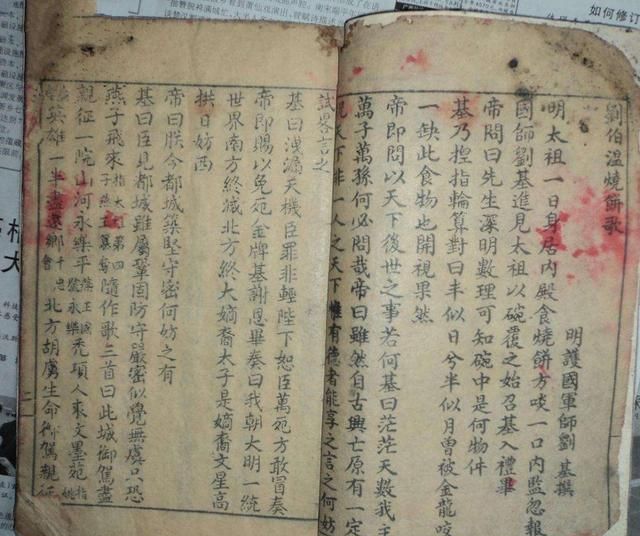 劉伯温燒餅歌
明護國軍師劉基撰
明太祖一日身居内殿食燒餅方啖一口内監忽報
國師劉基進見太祖以碗覆之始召基入禮畢
帝問曰先生深明數理可知碗中是何物件
基乃揑指輪算對曰半似日兮半似月曾被金龍咬
一缺此食物也開視果然
帝即問以天下後世之事若何基曰茫茫天數我主
萬子萬孫何必問哉帝曰雖然自古興亡原有一定
況天下非一人之天下惟有德者能享之言之何妨
試畧言之
基曰洩漏天機臣罪非輕陛下恕臣萬死方敢冒奏
帝即賜以免死金牌基謝恩畢奏曰我朝大明一統
世界南方終滅北方終大嫡裔太子是嫡裔文星高
拱日妨西
帝曰朕今都城築堅守密何妨之有
基曰臣見都城雖屬鞏固防守嚴密似覺無虞只恐
燕子飛來指太祖第四子燕王篡奪隨作歌三首曰此城御駕盡
親征一院山河永樂平 禿頂人來文墨苑指姚
英雄一半盡還鄉 北方胡虜生命御駕親征
如何修订